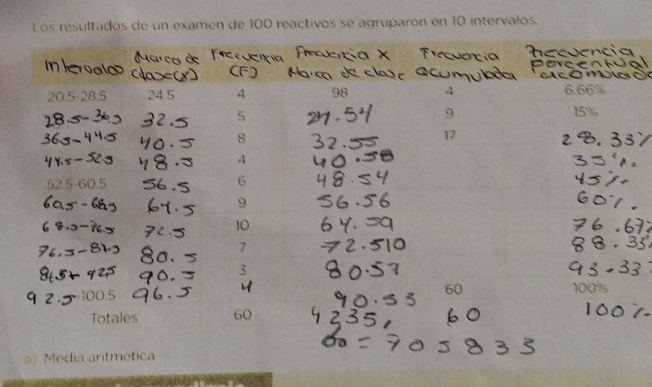 Los resultados de un examen de 100 reactivos se agruparon en 10 intervalos.
Intervalos Marca de clase (x) Frecuencia (F) Frecuencia x Marca de clase Frecuencia acumulada Frecuencia porcentual acomulada
20.5-28.5 24.5 4 98 4 6.66%
28.5-36.5 32.5 5 24.54 9 15%
36.5-44.5 40.5 8 32.55 17 28.33%
44.5-52.5 48.5 4 40.58 35%
52.5-60.5 56.5 6 48.54 45%
60.5-68.5 64.5 9 56.56 60%
68.5-76.5 72.5 10 64.59 76.67%
76.5-84.5 80.5 7 72.510 88.33%
84.5- 92.5 90.5 3 80.57 93.33
92.5-100.5 96.5 4 90.53 60 100%
Totales 60 4235, 60 100%
60 = 705833
a) Media aritmética